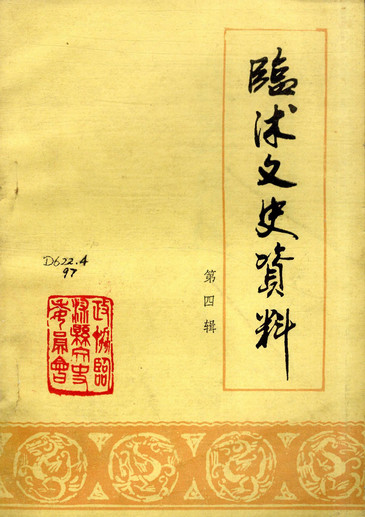 臨沭文史資料
第四辑
D622.4
97
政協臨
沭縣文史
委員會